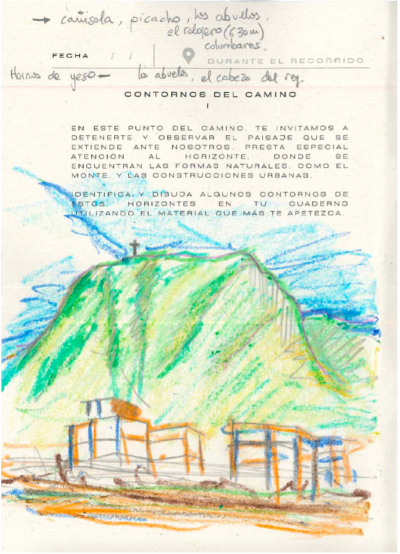 → camisola, picacho, los abuelos,
el relojero (630m)
columbares.
FECHA / / DURANTE EL RECORRIDO
Hornos de yeso — los abuelos, el cabezo del rey.
CONTORNOS DEL CAMINO
I
EN ESTE PUNTO DEL CAMINO, TE INVITAMOS A
DETENERTE Y OBSERVAR EL PAISAJE QUE SE
EXTIENDE ANTE NOSOTROS. PRESTA ESPECIAL
ATENCIÓN AL HORIZONTE, DONDE SE
ENCUENTRAN LAS FORMAS NATURALES, COMO EL
MONTE, Y LAS CONSTRUCCIONES URBANAS.
IDENTIFICA Y DIBUJA ALGUNOS CONTORNOS DE
ESTOS HORIZONTES EN TU CUADERNO
UTILIZANDO EL MATERIAL QUE MÁS TE APETEZCA.